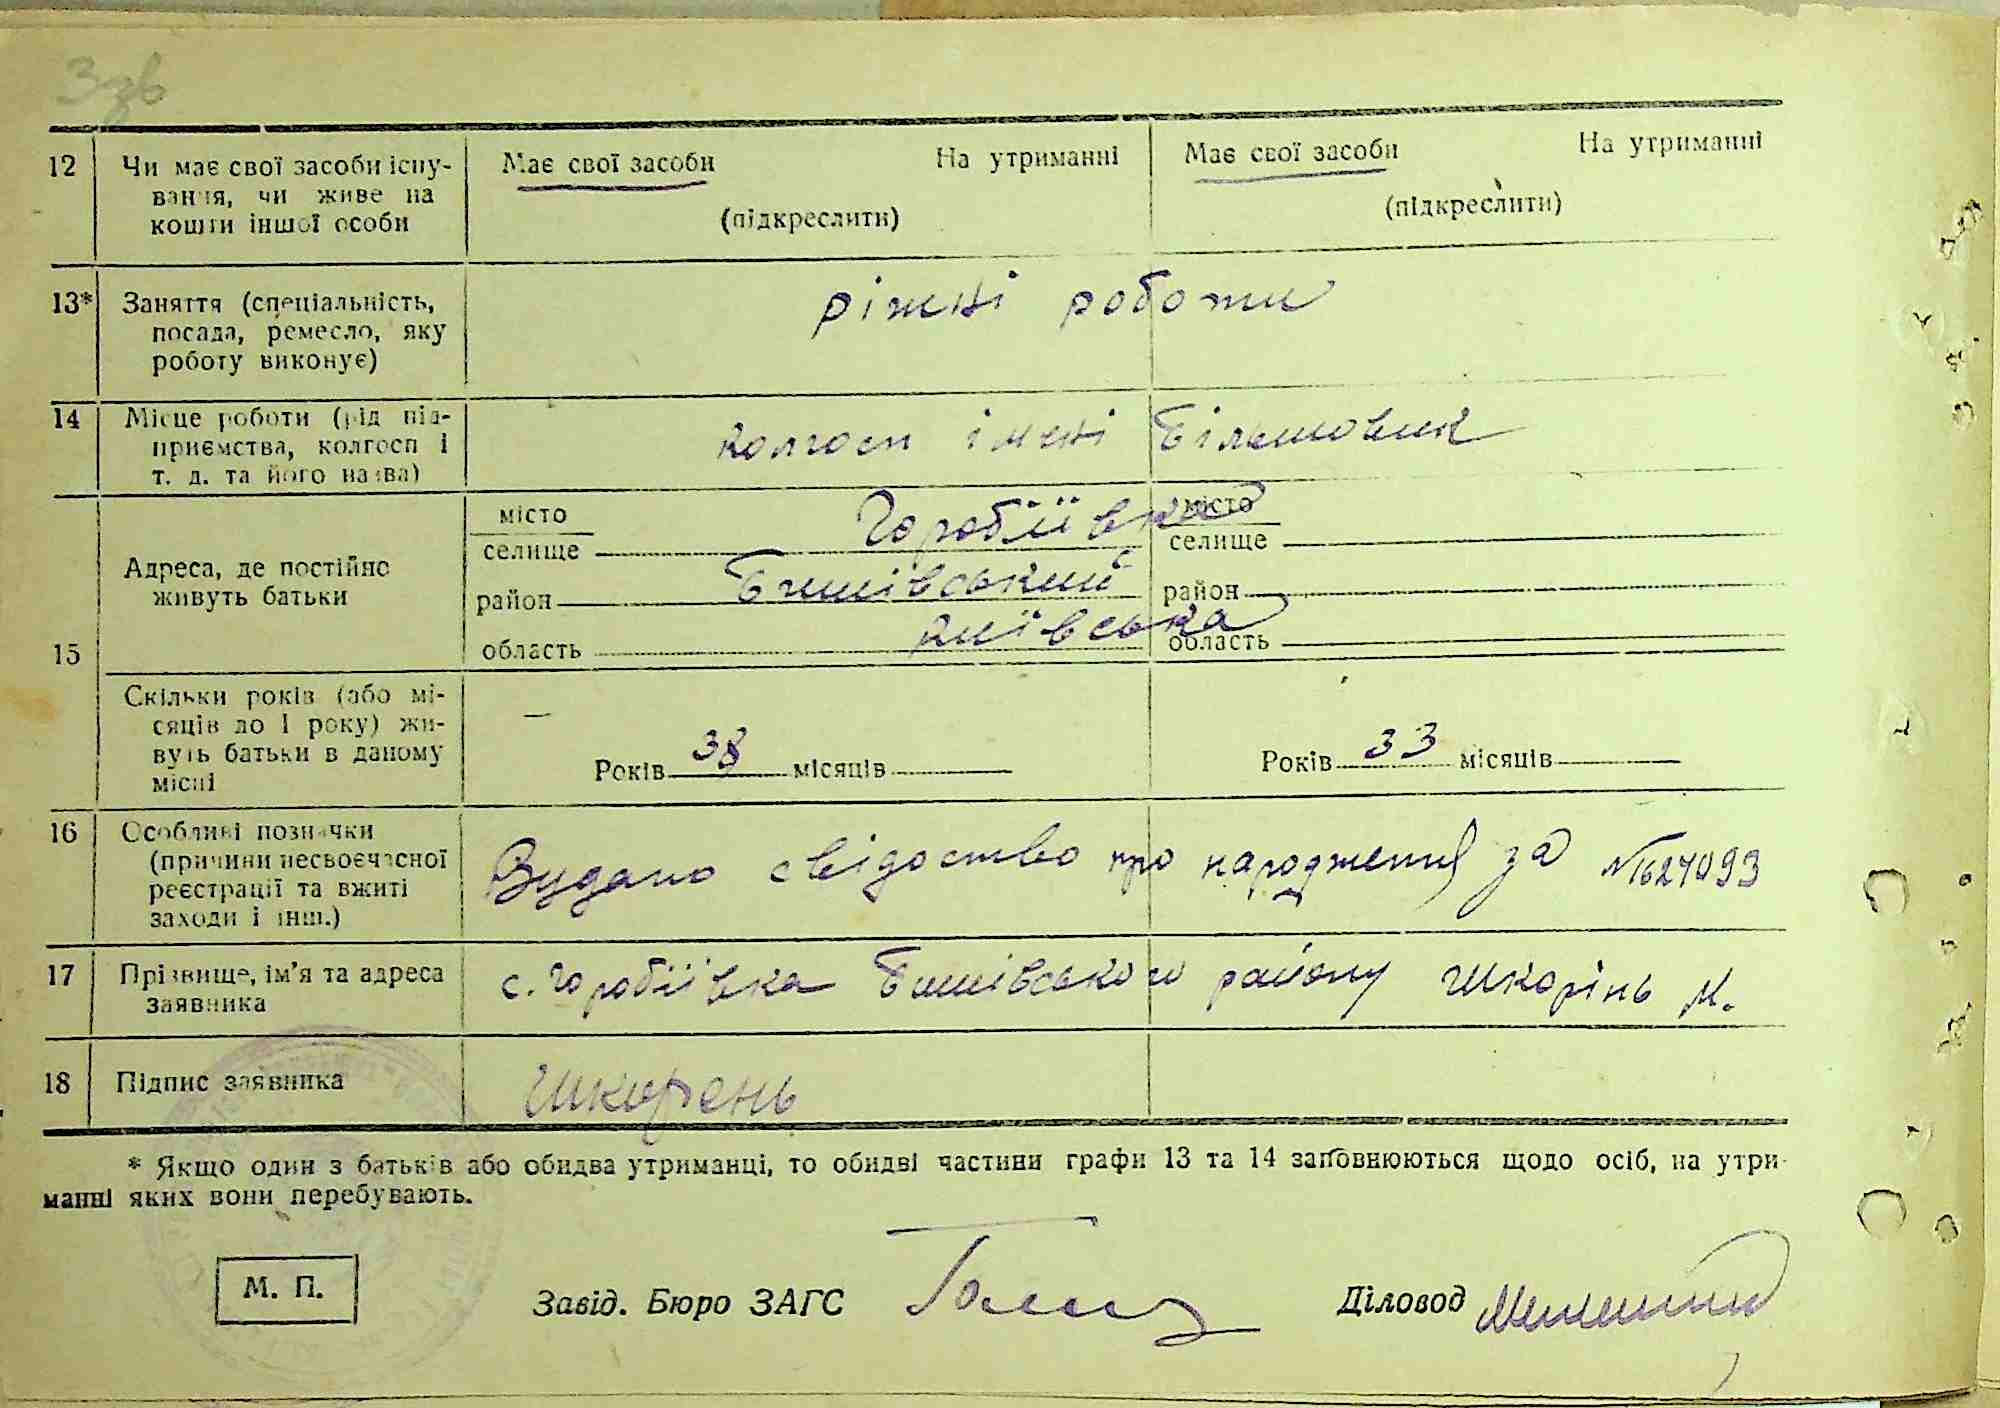 3зв
12 Чи має свої засоби існу- Має свої засоби На утриманні Має свої засоби На утриманні
вання, чи живе на
кошти іншої особи (підкреслити) (підкреслити)
13* Заняття (спеціальність, ріжні роботи
посада, ремесло, яку
роботу виконує)
14 Місце роботи (рід під- колгосп імені Більшовик
приємства, колгосп і
т. д. та його назва)
15 Адреса, де постійно
живуть батьки
місто Горобіївка місто
селище селище
район Бишівський район
область київська область
Скільки років (або мі-
сяців до 1 року) жи-
вуть батьки в даному
місці
Років 38 місяців Років 33 місяців
16 Особливі позначки
(причини несвоєчасної Видано свідоство про народження за №1627093
реєстрації та вжиті
заходи і інш.)
17 Прізвище, ім'я та адреса с. Горобіївка Бишівського району Шкорінь М.
заявника
18 Підпис заявника Шкорень
* Якщо один з батьків або обидва утриманці, то обидві частини графи 13 та 14 заповнюються щодо осіб, на утри-
манні яких вони перебувають.
М. П. Завід. Бюро ЗАГС Діловод